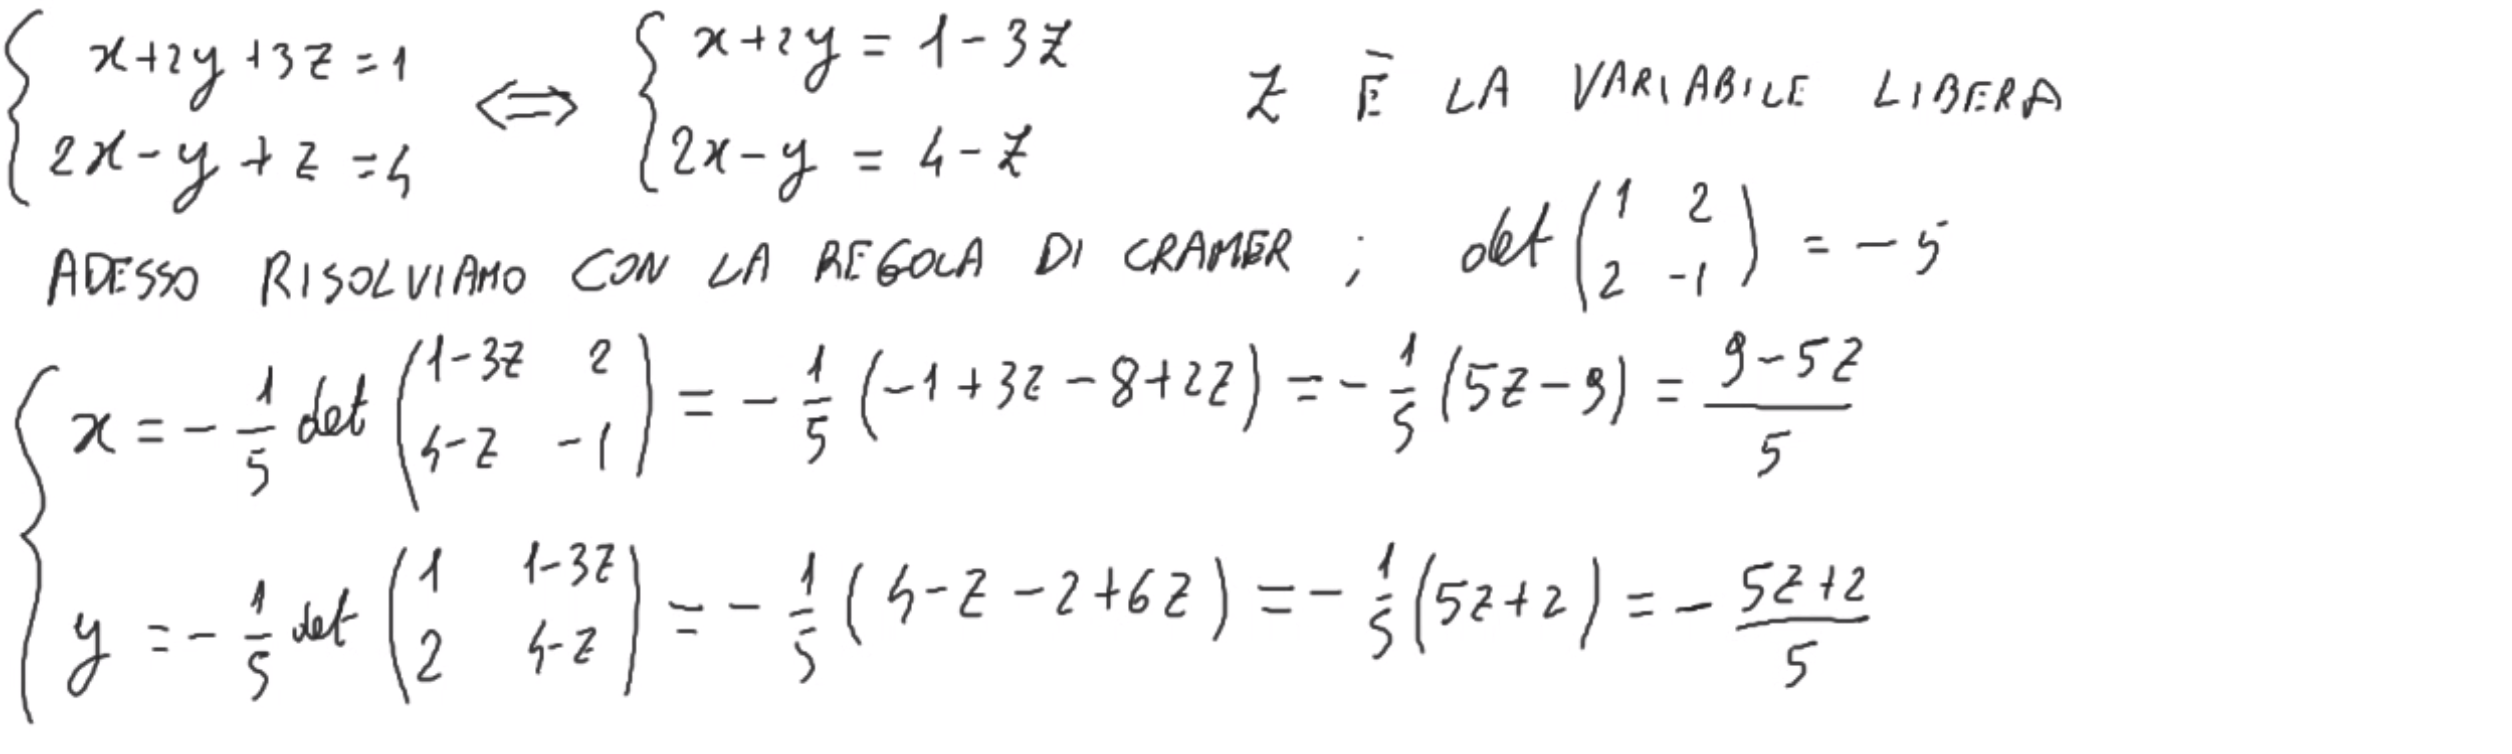 { x+2y+3z=1 ⟺ { x+2y=1-3z Z È LA VARIABILE LIBERA
{ 2x-y+z=4 { 2x-y=4-z
ADESSO RISOLVIAMO CON LA REGOLA DI CRAMER ; det (1 2 / 2 -1) = -5
{ x = -1/5 det (1-3z 2 / 4-z -1) = -1/5 (-1+3z-8+2z) = -1/5 (5z-9) = (9-5z)/5
{ y = -1/5 det (1 1-3z / 2 4-z) = -1/5 (4-z-2+6z) = -1/5 (5z+2) = -(5z+2)/5